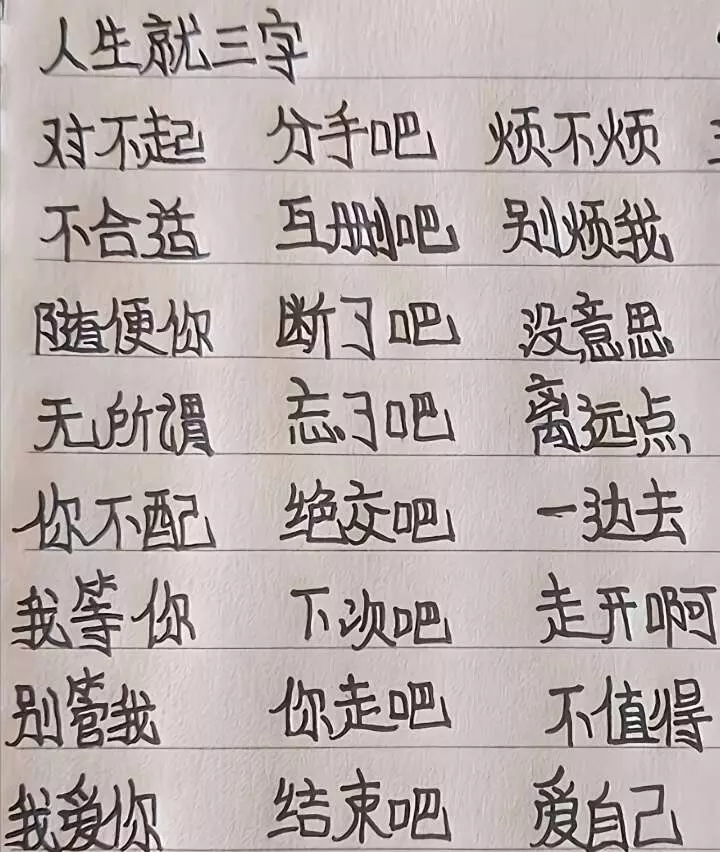 人生就三字
对不起 分手吧 烦不烦
不合适 互删吧 别烦我
随便你 断了吧 没意思
无所谓 忘了吧 离远点
你不配 绝交吧 一边去
我等你 下次吧 走开啊
别管我 你走吧 不值得
我爱你 结束吧 爱自己